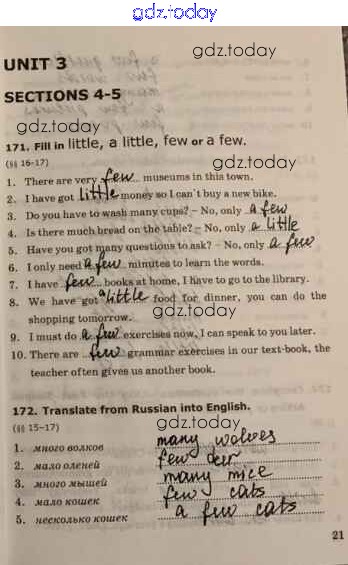 gdz.today
gdz.today
UNIT 3
SECTIONS 4-5
gdz.today
171. Fill in little, a little, few or a few.
(§§ 16-17)
gdz.today
1. There are very few museums in this town.
2. I have got little money so I can't buy a new bike.
3. Do you have to wash many cups? – No, only a few
4. Is there much bread on the table? – No, only a little
gdz.today
5. Have you got many questions to ask? – No, only a few
6. I only need a few minutes to learn the words.
7. I have few books at home, I have to go to the library.
8. We have got a little food for dinner, you can do the
shopping tomorrow.
gdz.today
9. I must do a few exercises now, I can speak to you later.
10. There are few grammar exercises in our text-book, the
teacher often gives us another book.
gdz.today
172. Translate from Russian into English.
(§§ 15-17)
1. много волков many wolves
2. мало оленей few deer
3. много мышей many mice
4. мало кошек few cats
5. несколько кошек a few cats
gdz.today
21
gdz.today